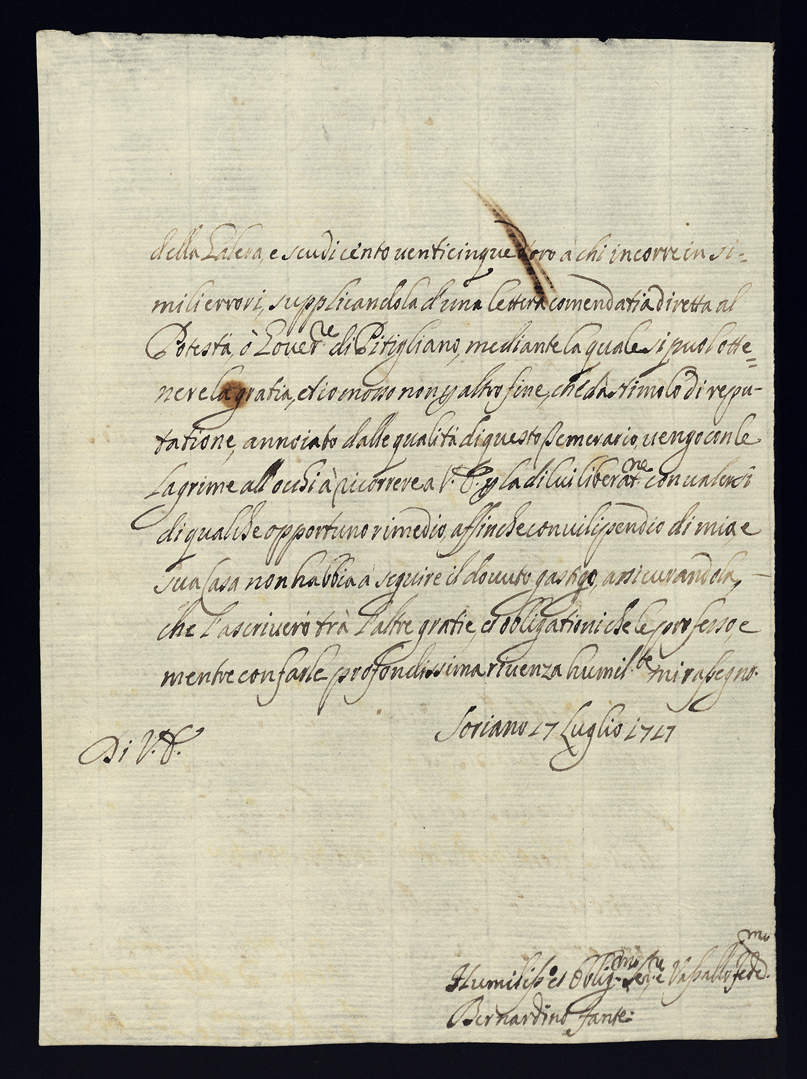 della Galera, e scudi cento venticinque d'oro a chi incorre in si=
mili errori, supplicandola d'una lettera comendatia diretta al
Potestà, ò Gover.re di Pitigliano, mediante la quale si puol otte=
nere la gratia, et io mosso non p altro fine, che da stimolo di repu-
tatione, annoiato dalle qualità di questo Semerario, vengo con le
lagrime all'occhi à ricorrere a V. E. p la di lui liberat.ne con valersi
di qualche opportuno rimedio, affinche con vilipendio di mia, e
sua Casa non habbia à seguire il dovuto gastigo, assicurandola,
che l'ascriverò trà l'altre gratie, et obligationi che le professo, e
mentre con farle profondissima riverenza humil.te mi rassegno.
Soriano 17 Luglio 1717
Di V. E.
Humiliss.o et Oblig.mo Ser.re e Vassallo fedel.mo
Bernardino Fante